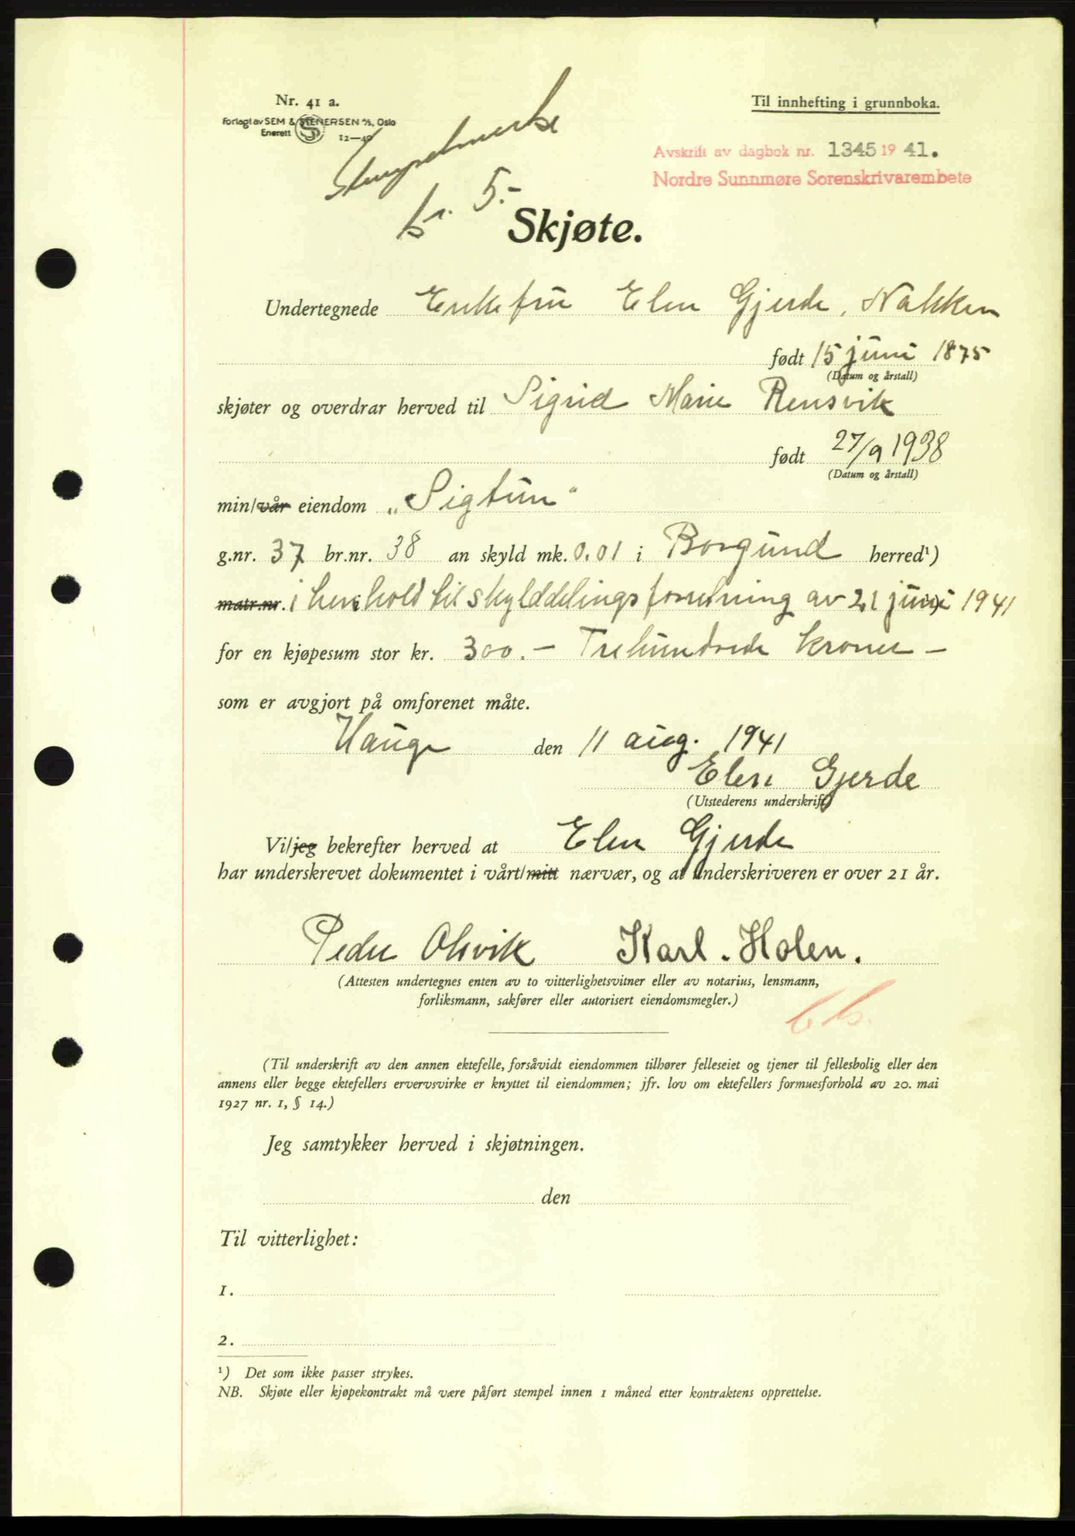 Nr. 41 a.
Forlagt av SEM & STENERSEN A/S, Oslo
Enerett 12—40
Til innhefting i grunnboka.
Stempelmerke
kr. 5.-
Avskrift av dagbok nr. 1345 19 41.
Nordre Sunnmøre Sorenskrivarembete
Skjøte.
Undertegnede Enkefru Elen Gjerde, Nakken
født 15 juni 1875
(Datum og årstall)
skjøter og overdrar herved til Sigrid Marie Rensvik
født 27/9 1938
(Datum og årstall)
min/vår eiendom „Sigtun"
g.nr. 37 br.nr. 38 an skyld mk. 0.01 i Borgund herred¹)
matr.nr. i henhold til skylddelingsforretning av 21 juni 1941
for en kjøpesum stor kr. 300.- Trehundrede kroner -
som er avgjort på omforenet måte.
Hauge den 11 aug. 1941
Elen Gjerde
(Utstederens underskrift)
Vi/jeg bekrefter herved at Elen Gjerde
har underskrevet dokumentet i vårt/mitt nærvær, og at underskriveren er over 21 år.
Peder Olsvik Karl. Holen.
(Attesten undertegnes enten av to vitterlighetsvitner eller av notarius, lensmann,
forliksmann, sakfører eller autorisert eiendomsmegler.)
(Til underskrift av den annen ektefelle, forsåvidt eiendommen tilhører felleseiet og tjener til fellesbolig eller den
annens eller begge ektefellers ervervsvirke er knyttet til eiendommen; jfr. lov om ektefellers formuesforhold av 20. mai
1927 nr. 1, § 14.)
Jeg samtykker herved i skjøtningen.
den
Til vitterlighet:
1.
2.
¹) Det som ikke passer strykes.
NB. Skjøte eller kjøpekontrakt må være påført stempel innen 1 måned etter kontraktens opprettelse.